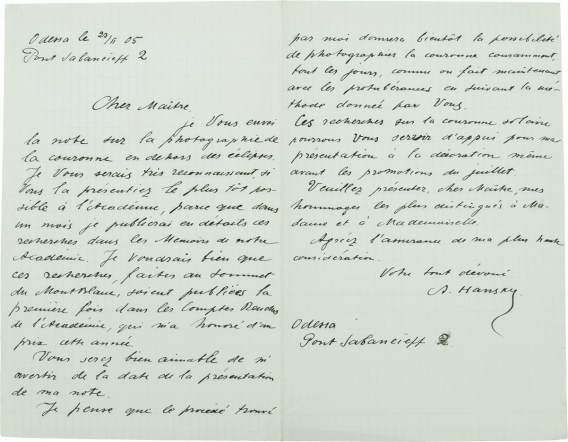 Odessa le 23/II 05
Pont Sabancieff 2
Cher Maître.
je Vous envoi
la note sur la photographie de
la couronne en dehors des éclipses.
Je Vous serais très reconnaissant, si
Vous la présentiez le plus tôt pos-
sible à l'Académie, parce que dans
un mois je publierai en détails ces
recherches dans les Memoirs de notre
Académie. Je Voudrais bien que
ces recherches, faites au sommet
du Mont Blanc, soient publiées la
première fois dans les Comptes Rendus
de l'Académie, qui m'a honoré d'un
prix cette année.
Vous serez bien aimable de m'
avertir de la date de la présentation
de ma note.
Je pense que le procédé trouvé
par moi donnera bientôt la possibilité
de photographier la couronne couramment,
tout les jours, comme on fait maintenant
avec les protubérances en suivant la mé-
thode donnée par Vous.
Ces recherches sur la couronne solaire
pourrons Vous servir d'appui pour ma
présentation à la décoration même
avant les promotions du juillet.
Veuillez présenter, cher Maître, mes
hommages les plus distingués à Ma-
dame et à Mademoiselle.
Agréez l'assurance de ma plus haute
considération.
Votre tout dévoué
A. Hansky
Odessa
Pont Sabancieff 2